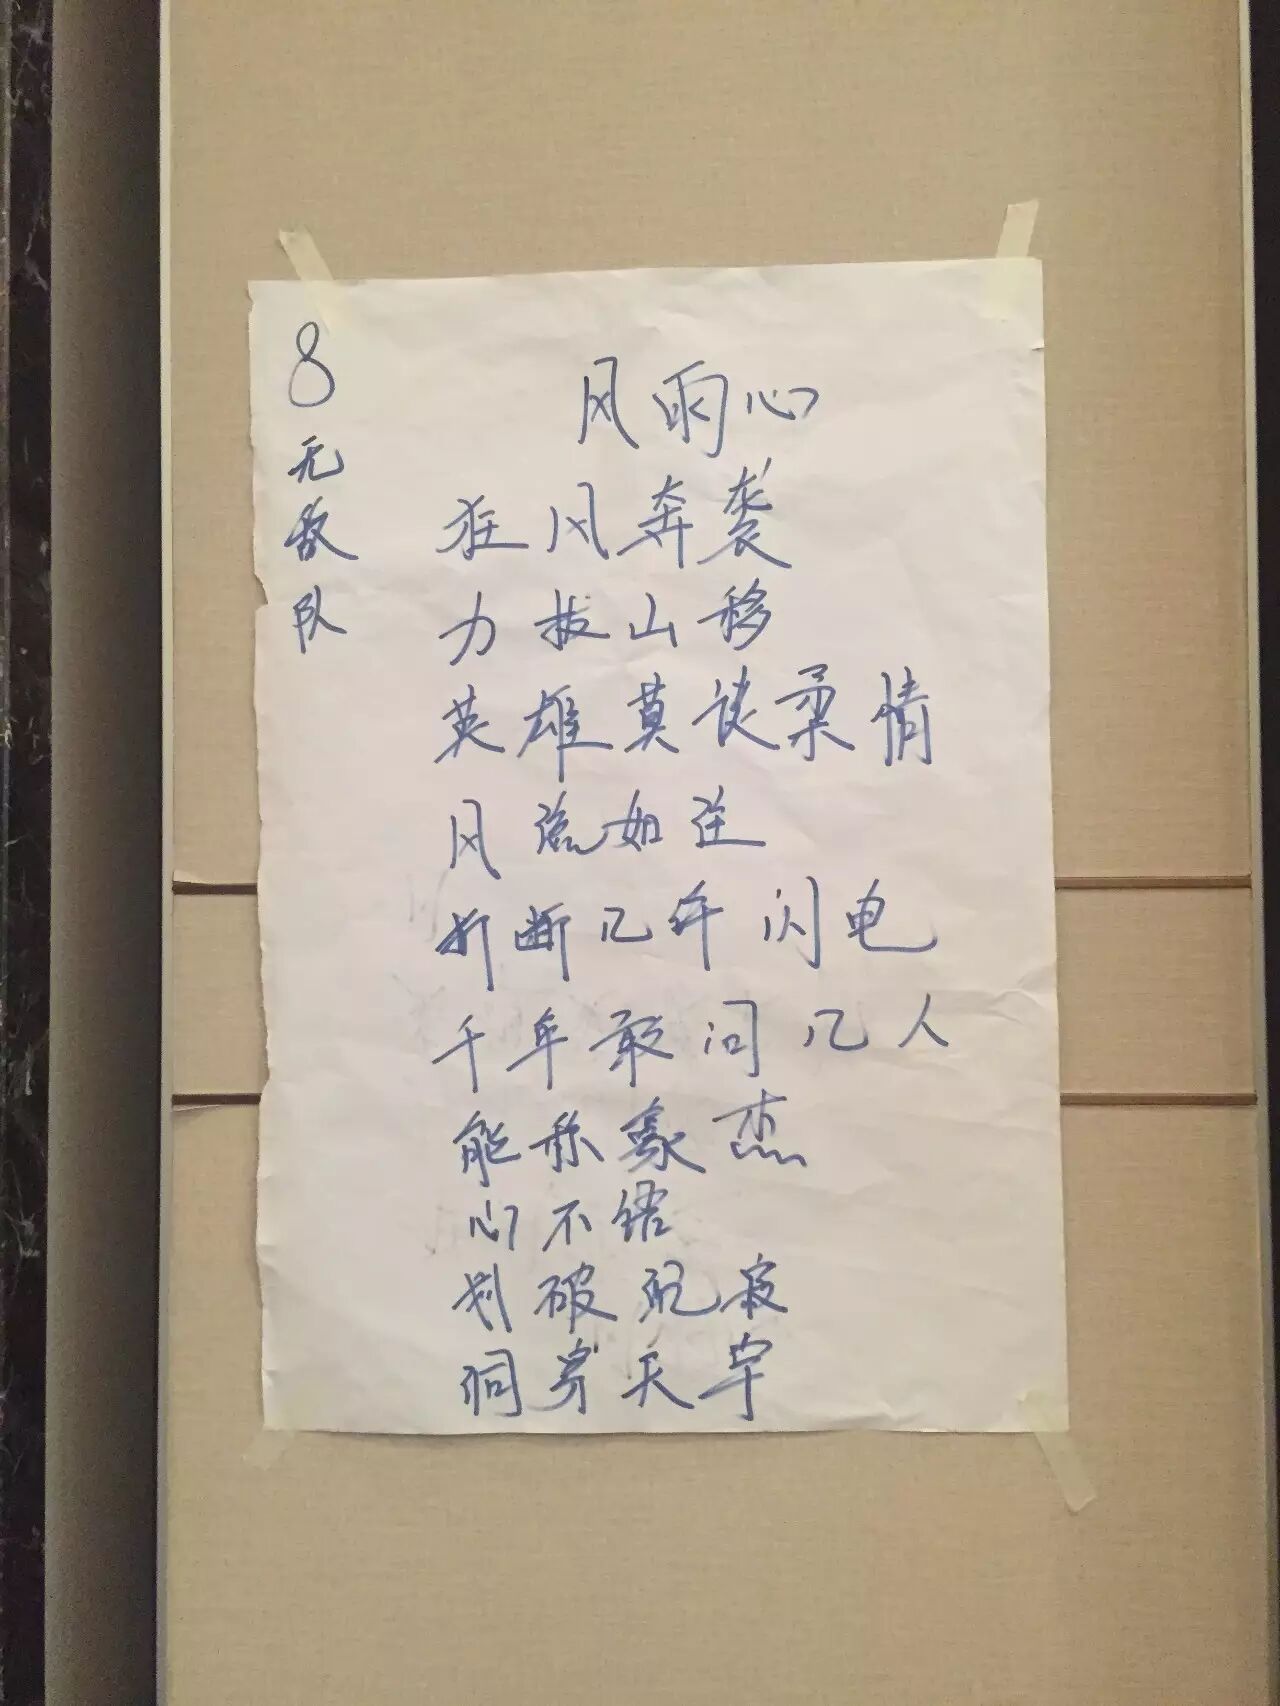 8
无敌队
风雨心
狂风奔袭
力拔山移
英雄莫谈柔情
风流如
折断几年闪电
千年敢问几人
能称豪杰
心不错
划破寂
洞穿天宇